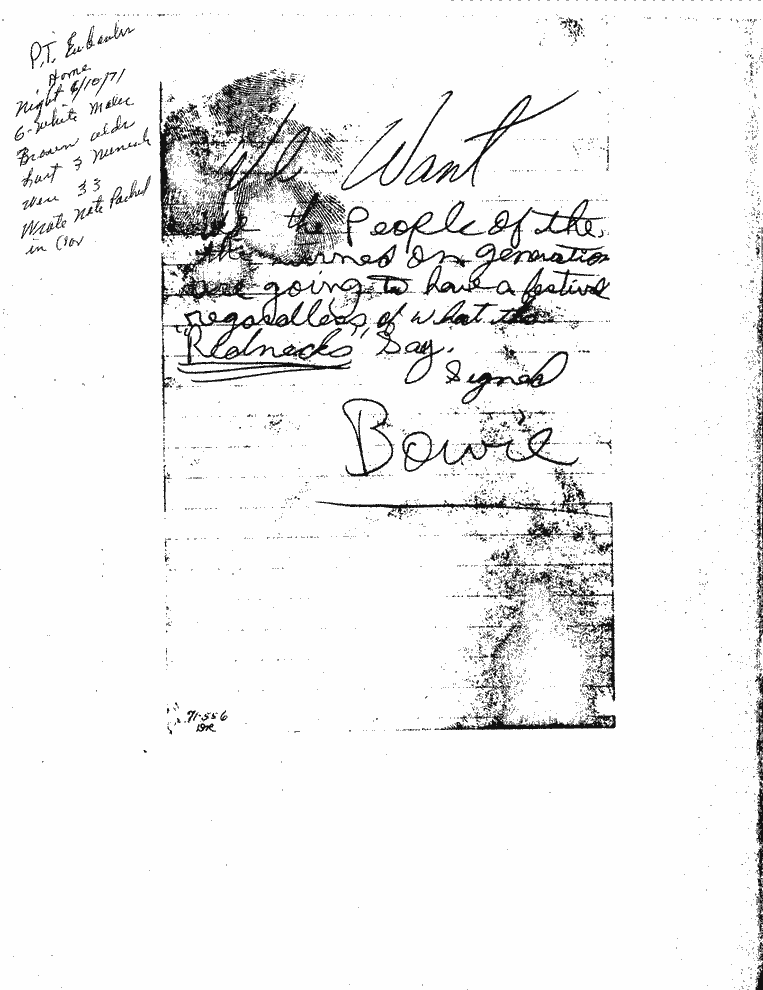 P.T. Eubanks
Home
Night 8/10/71
6-White Males
Brown
last 3
were 33
Wrote Note Packed
in Car
We Want
We the People of the
the turned on generation
are going to have a festival
regardless of what the
"Rednecks" Say.
Signed
Bowie
71-556